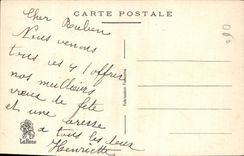 CARTE POSTALE
Cher Bouben
Nous venons
tous les 4 t'offrir
nos meilleurs
vœux de fête
et une caresse
a tous les deux
Henriette
Fabrication Française
LaRose